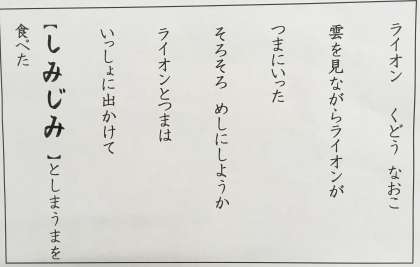 ライオン　くどう　なおこ
雲を見ながらライオンが
つまにいった
そろそろ　めしにしようか
ライオンとつまは
いっしょに出かけて
【しみじみ】としまうまを
食べた